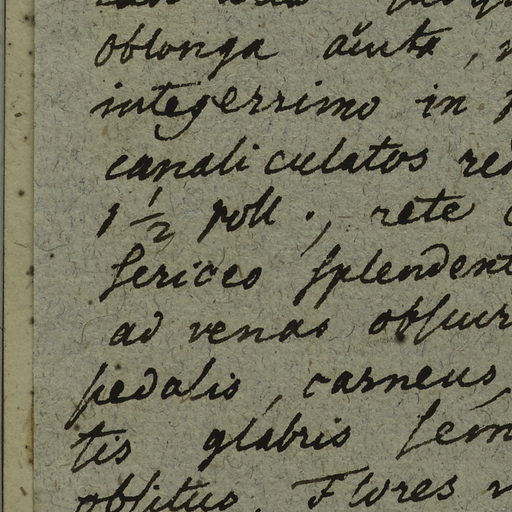 oblonga acuta,
integerrimo in
canaliculatos
1 1/2 poll., rete
sericeo splendent
ad venas obscur
pedalis, carneus,
tis glabris
obsitus. Flores